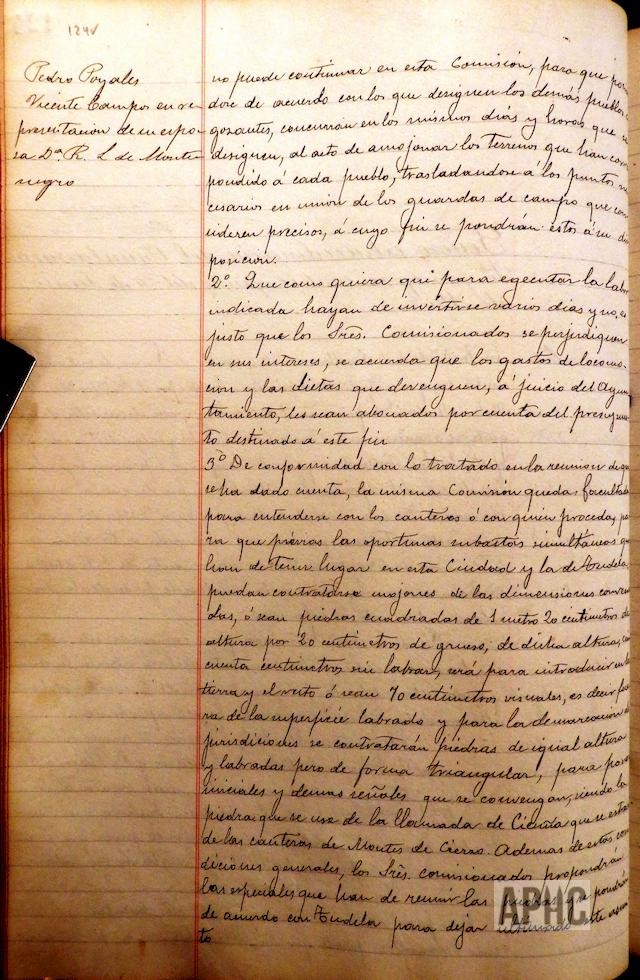 124v
Pedro Pozales
Vicente Campos en re-
presentacion de su espo-
sa Dª R. L. de Monte-
negro
no puede continuar en esta Comisión, para que
de acuerdo con los que designen los demás pueblos
gozantes, concurran en los mismos días y horas que se
designen, al acto de amojonar los terrenos que han
pondido á cada pueblo, trasladandose á los puntos
cesarios en union de los guardas de campo que con
sideren precisos, á cuyo fin se pondrán estos á su dis
posicion.
2º. Que como quiera que para egecutar la labor
indicada hayan de invertirse varios dias y no es
justo que los Sres. Comisionados se perjudiquen
en sus intereses, se acuerda que los gastos de locomo-
cion y las dietas que devenguen, á juicio del Ayun
tamiento, les sean abonados por cuenta del presupues
to destinado á este fin
3º De conformidad con lo tratado en la reunion de que
se ha dado cuenta, la misma Comisión queda facultada
para entenderse con los canteros ó con quien proceda, pa
ra que previas las oportunas subastas simultáneas que
han de tener lugar en esta Ciudad y la de Tudela
puedan contratarse mojones de las dimensiones conveni
das, ó sean piedras cuadradas de 1 metro 20 centimetros de
altura por 20 centimetros de grueso, de dicha altura, cin
cuenta centimetros sin labrar, será para introducir en la
tierra y el resto ó sean 70 centimetros visuales, es decir fue
ra de la superficie labrado y para la demarcacion de
jurisdiciones se contratarán piedras de igual altura
y labradas pero de forma triangular, para poner
iniciales y demas señales que se convengan, siendo la
piedra que se use de la llamada de que se extrae
de las canteras de Montes de Cierzo. Ademas de estas con
diciones generales, los Sres. comisionados propondrán
las especiales que han de reunir las piedras y se pondrán
de acuerdo con Tudela para dejar ultimado este asun
to
APHC